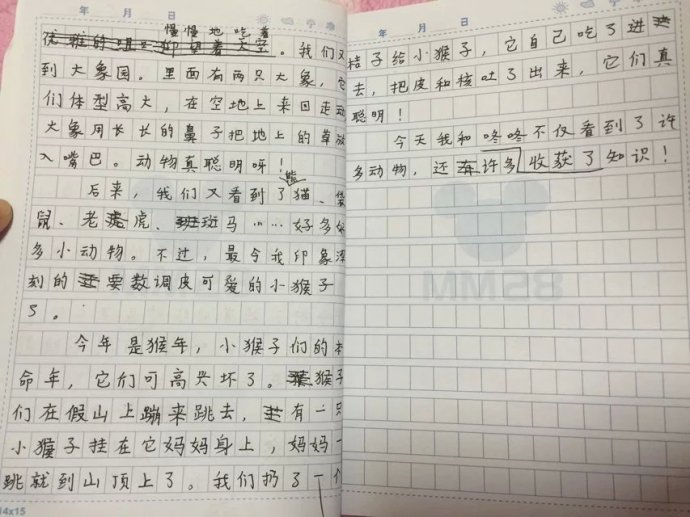 年 月 日
慢慢地吃着
优雅的 仰望着天空。我们又
到大象园。里面有两只大象，它
们体型高大，在空地上来回走动
大象用长长的鼻子把地上的草放
入嘴巴。动物真聪明呀！
熊
后来，我们又看到了猫、袋
鼠、老虎虎、班斑马……好多好
多小动物。不过，最令我印象深
刻的还要数调皮可爱的小猴子
了。
今年是猴年，小猴子们的本
命年，它们可高兴坏了。猴猴子
们在假山上蹦来跳去，有一只
小猴子挂在它妈妈身上，妈妈一
跳就到山顶上了。我们扔了一个
14x15
年 月 日
桔子给小猴子，它自己吃了进
去，把皮和核吐了出来，它们真
聪明！
今天我和咚咚不仅看到了许
多动物，还有许多收获了知识！
BSMM